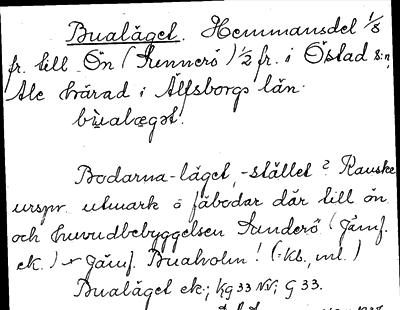 Bualäget. Hemmansdel 1/8
fr. till Ön (Sunnerö) 1/2 fr. i Östad s:n,
Ale härad i Älfsborgs län.
bùalægət.
Bodarna-läget, -stället? Kanske
urspr. utmark o fäbodar där till ön
och huvudbebyggelsen Sunderö (Jämf.
ek.) Jämf. Buaholm! (=kb., ml.)
Bualäget ek.; kg 33 NV; G 33.